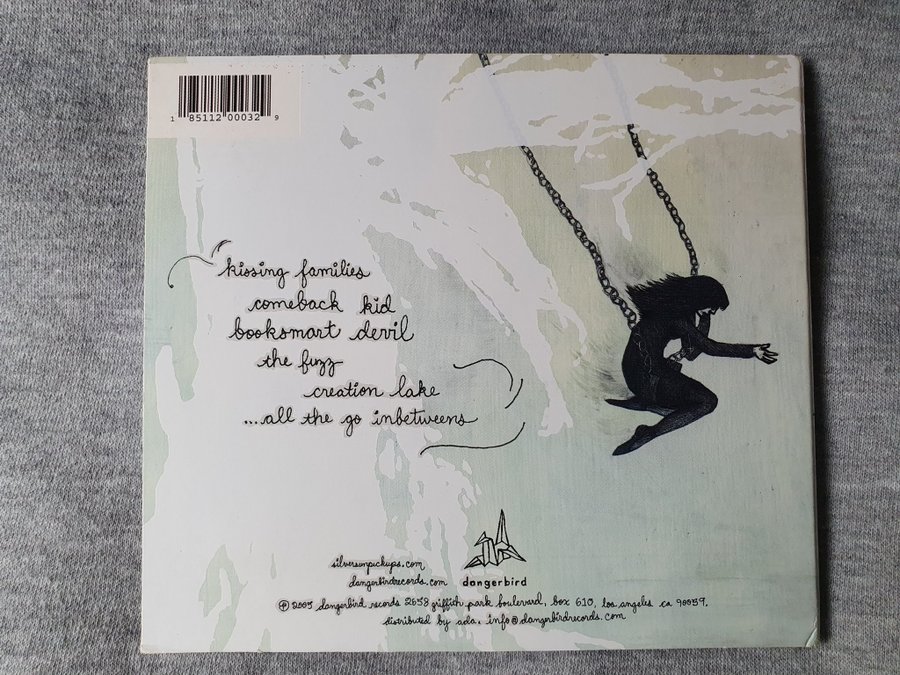 1 85112 00032 9
kissing families
comeback kid
booksmart devil
the fuzz
creation lake
...all the go inbetweens
silversunpickups.com
dangerbirdrecords.com
dangerbird
℗ 2005 dangerbird records 2658 griffith park boulevard, box 610, los angeles ca 90039.
distributed by ada. info@dangerbirdrecords.com